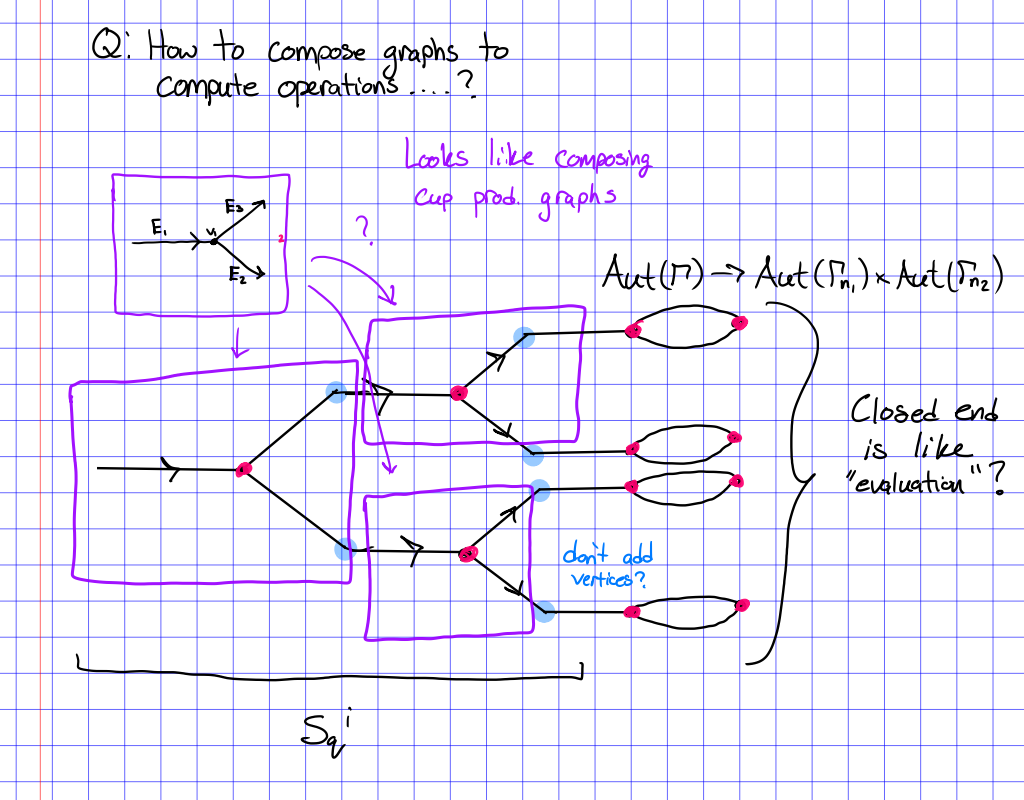 Q: How to compose graphs to
compute operations....?
Looks like composing
cup prod. graphs
?
E₁ V₁ E₃
E₂
2
Aut(Γ) → Aut(Γₙ₁) × Aut(Γₙ₂)
Closed end
is like
"evaluation"?
don't add
vertices?
Sqⁱ